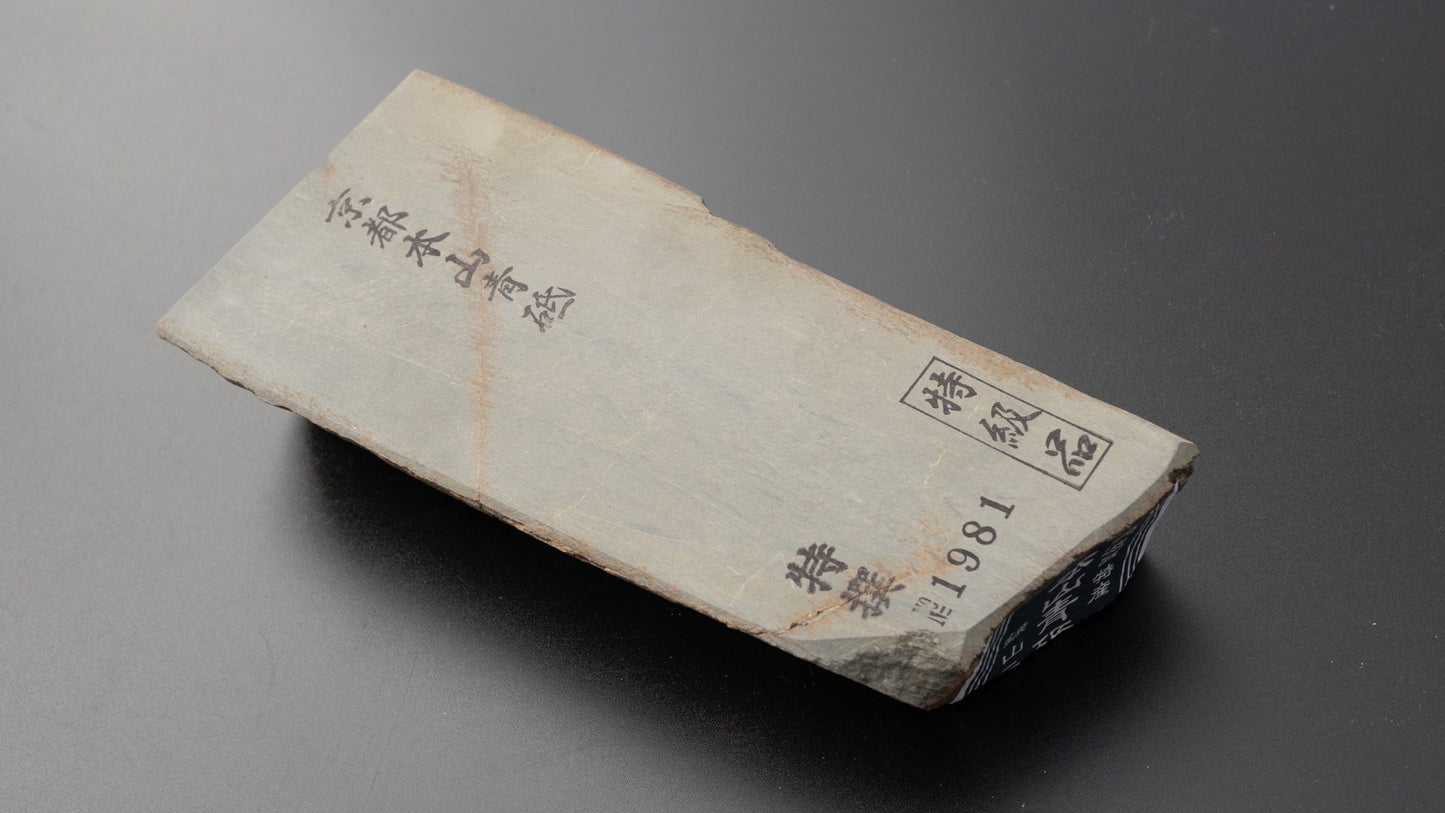 京都本山青砥
特級品
特撰
No 正 1981
特産